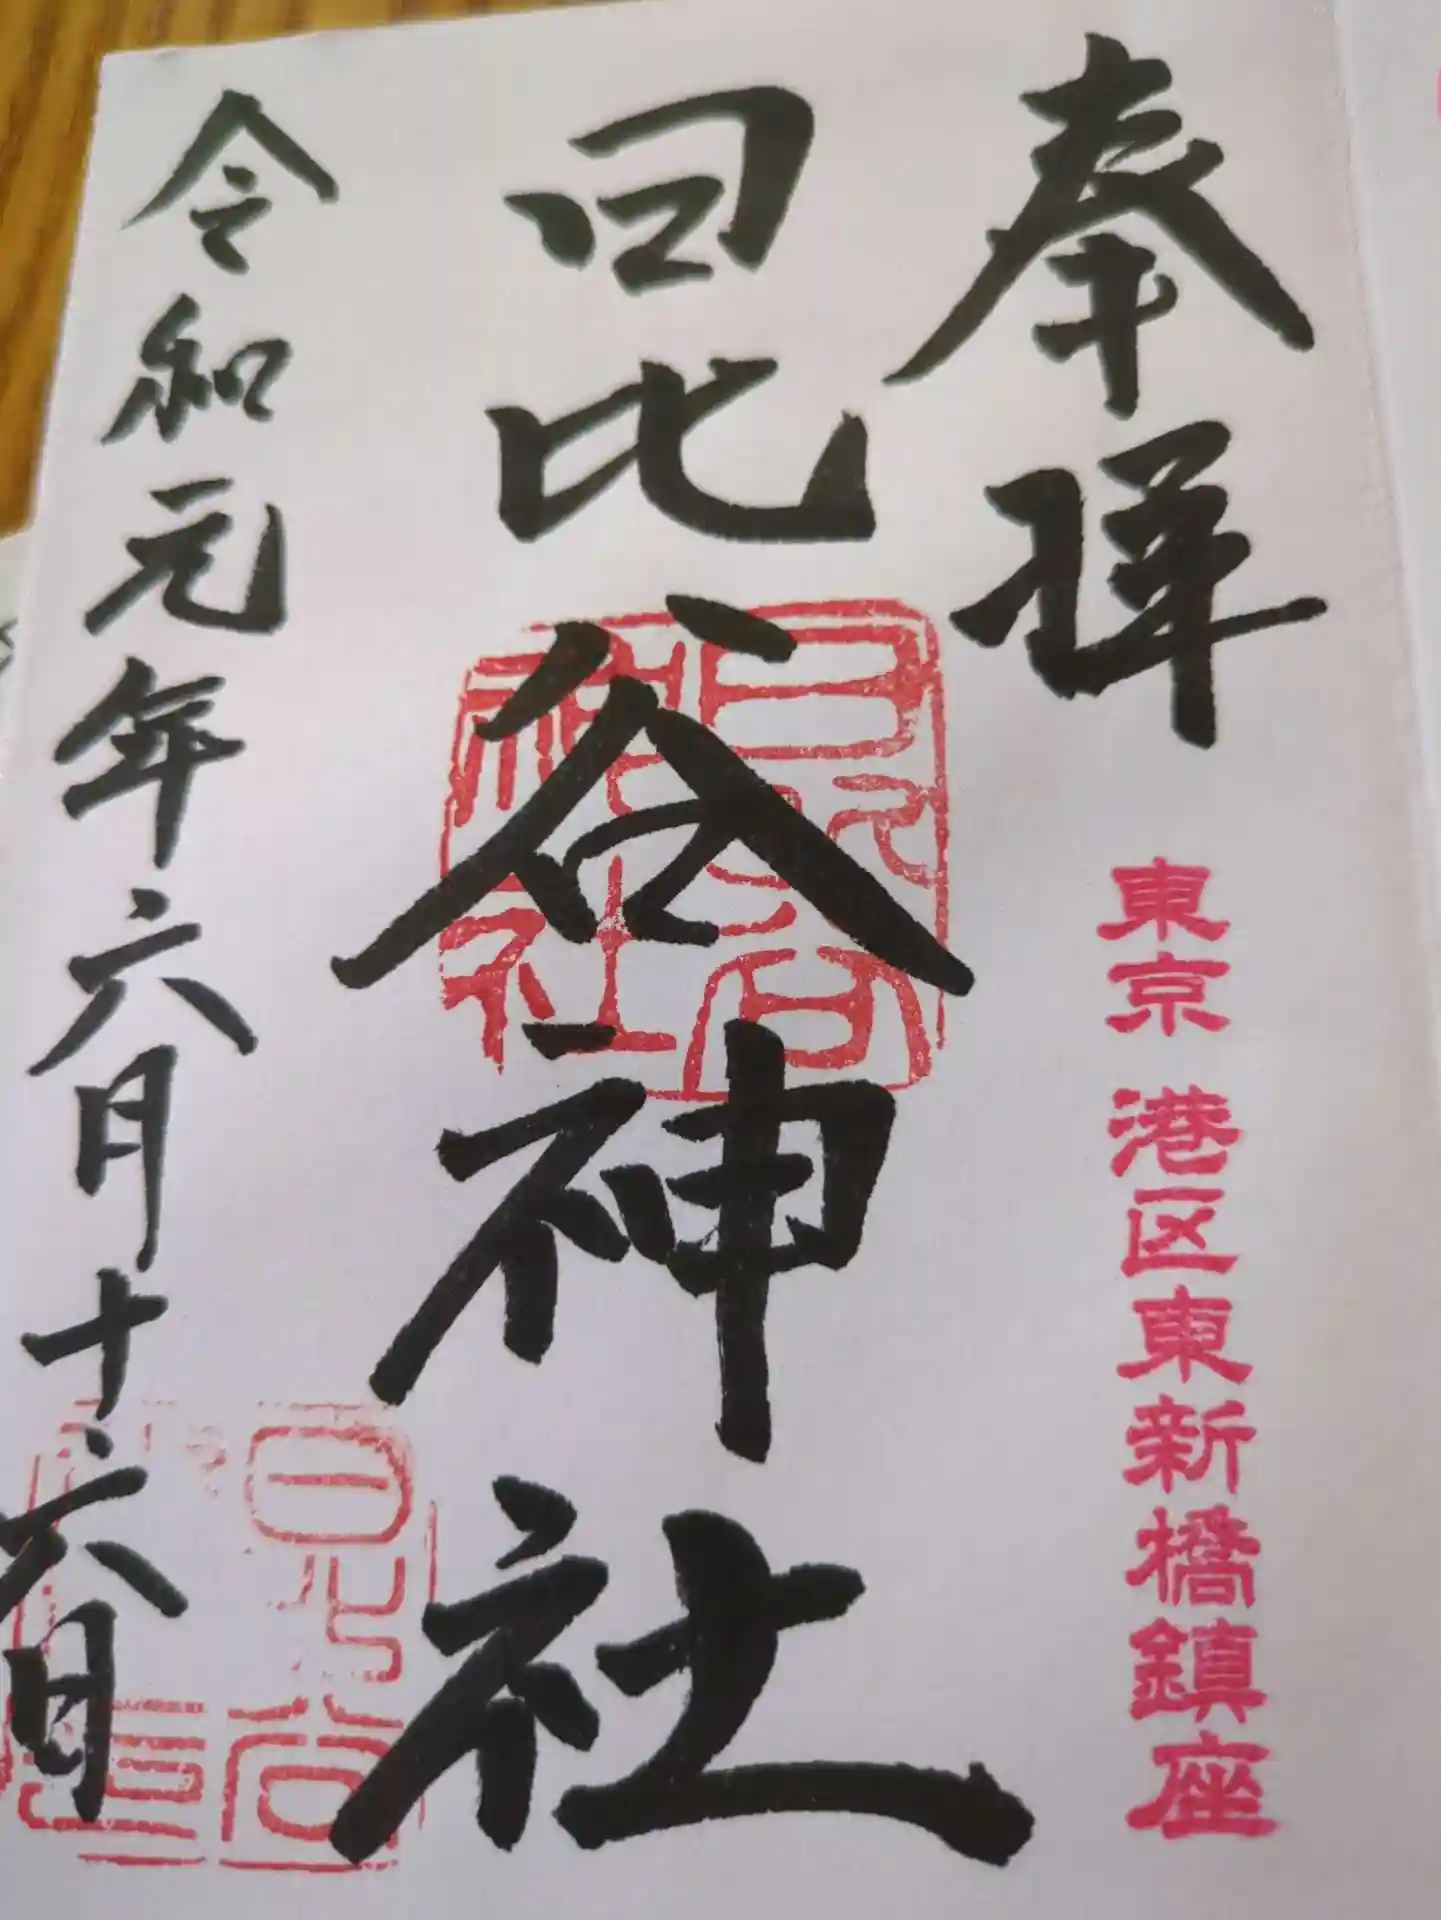 奉拝
東京 港区東新橋鎮座
日比谷神社
日比谷神社
令和元年六月十六日